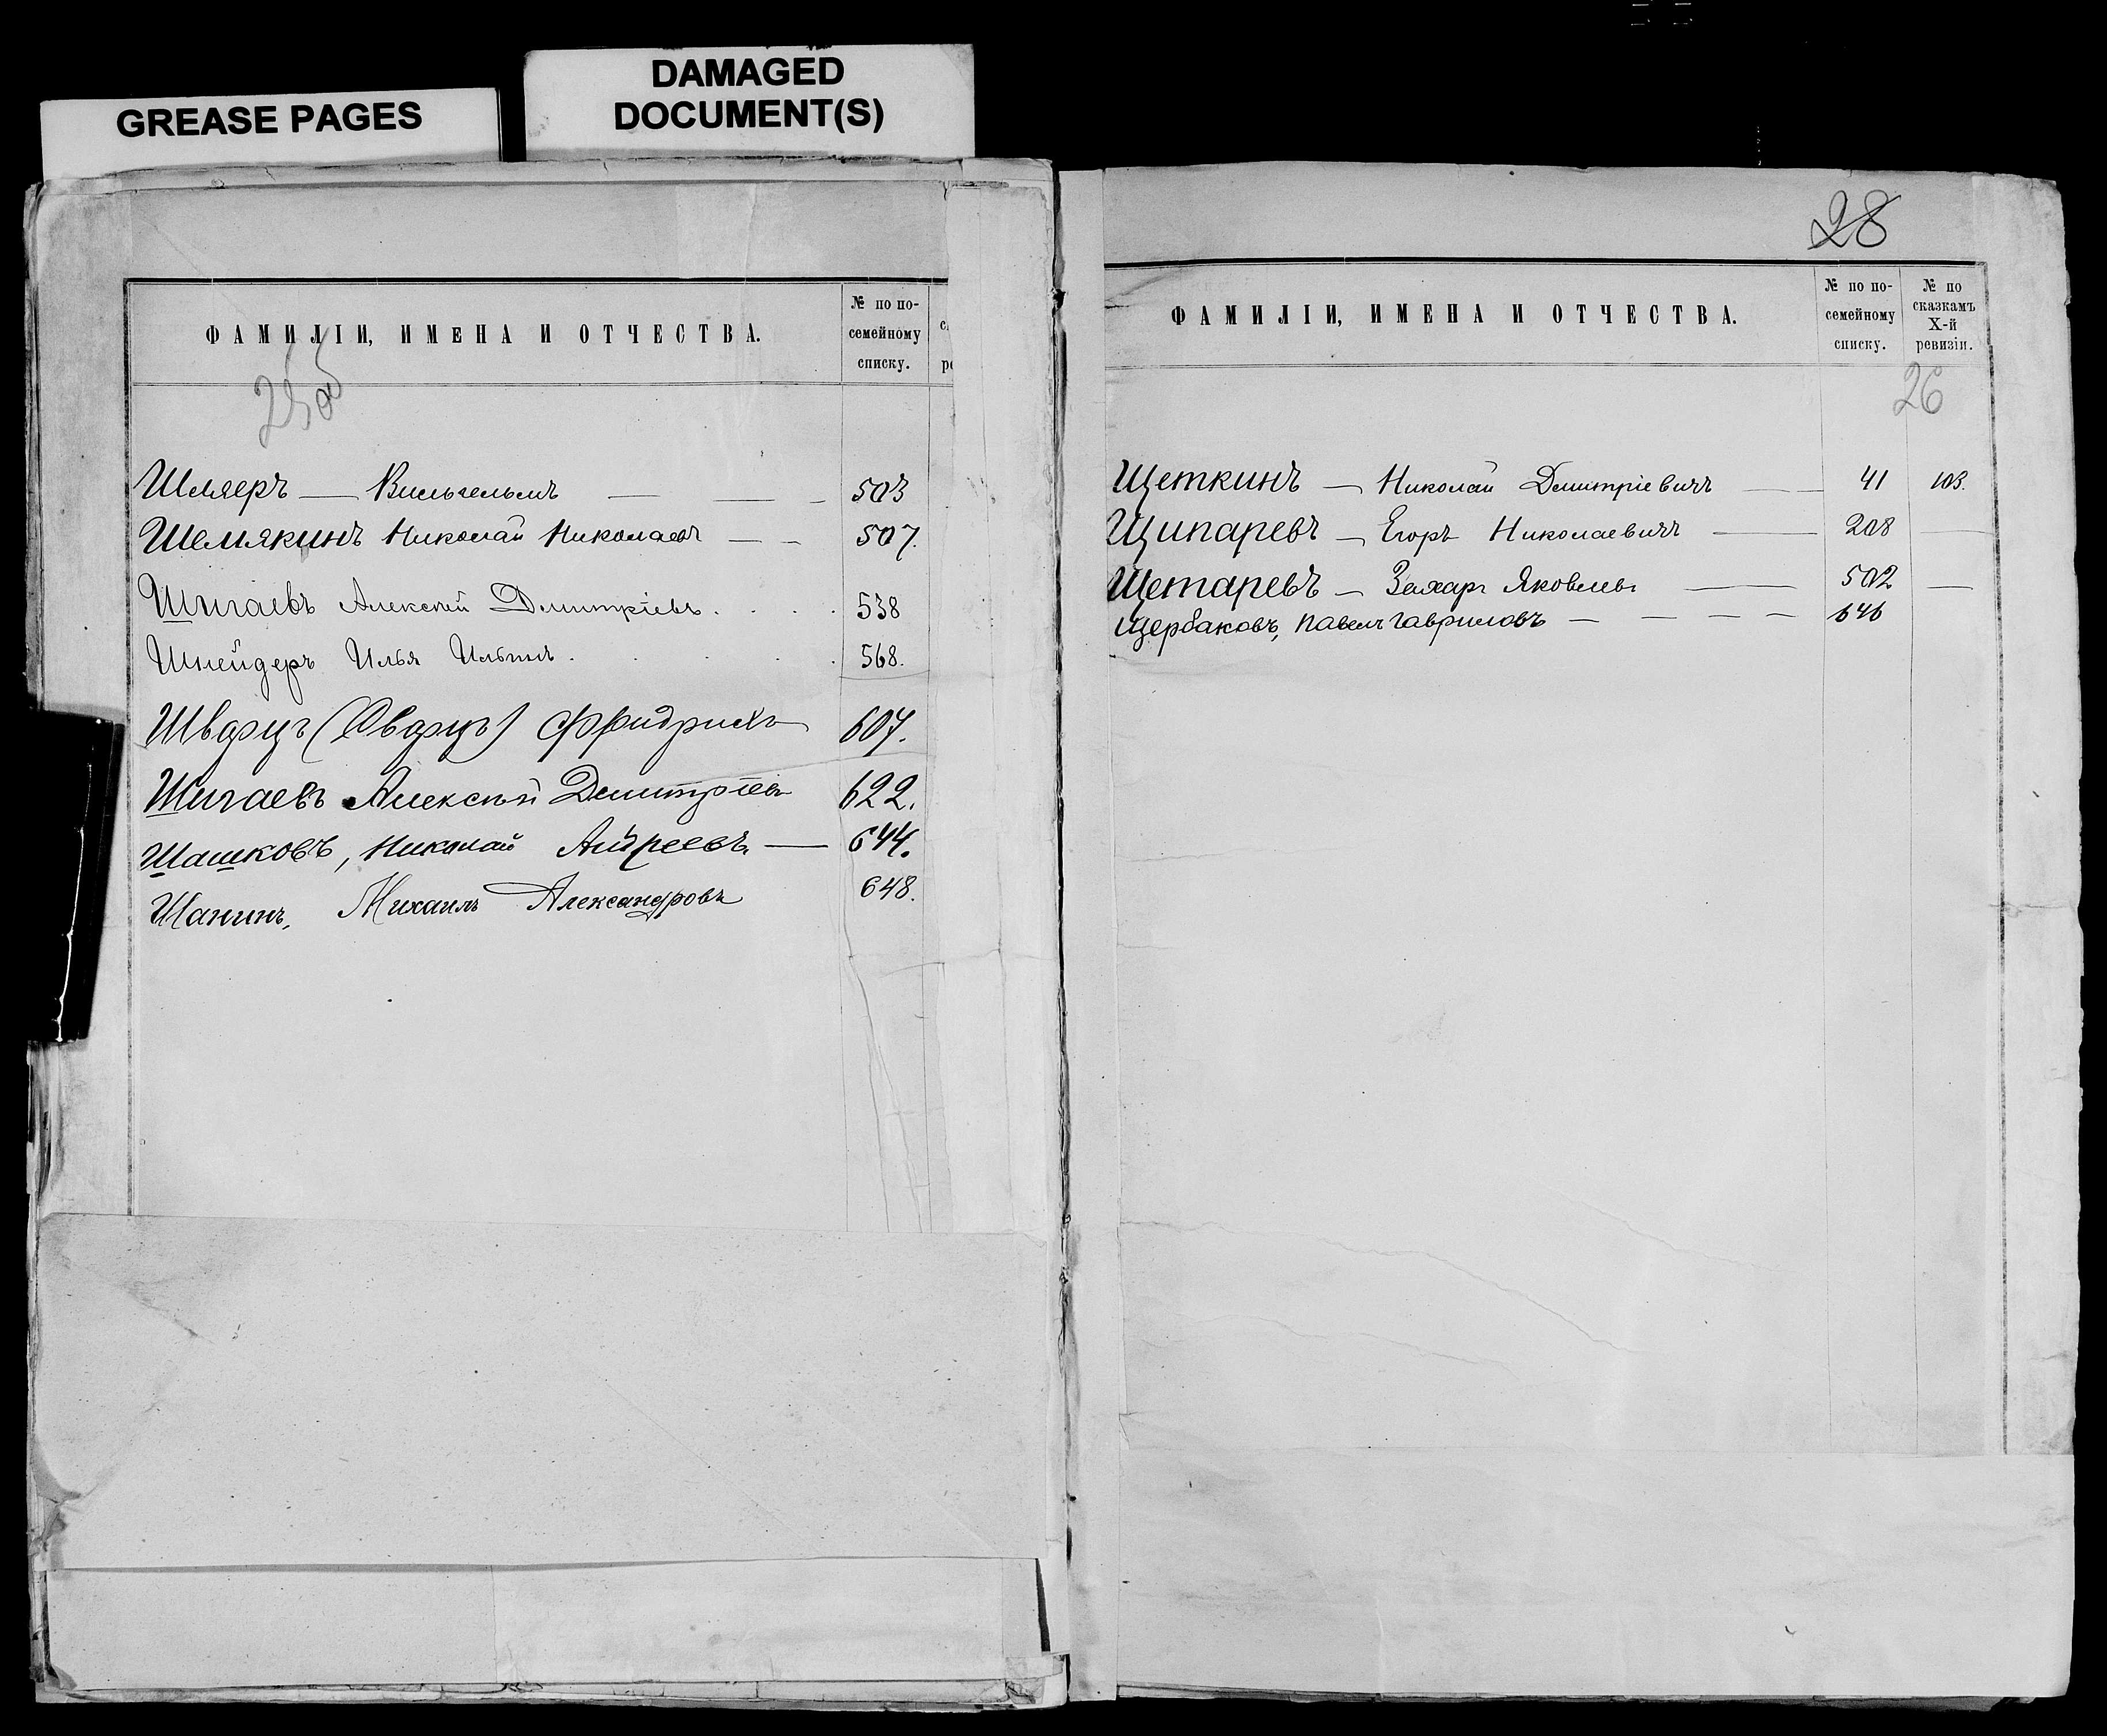 GREASE PAGES
DAMAGED
DOCUMENT(S)
ФАМИЛІИ, ИМЕНА И ОТЧЕСТВА.
№ по по-
семейному
списку.
25об
Шляеръ — Вильгельмъ — — — 503
Шемякинъ Николай Николаевъ — — 507.
Шигаевъ Алексей Дмитріевъ . . . . 538
Шнейдеръ Илья Ильинъ . . . . . 568.
Шварцъ (Овварцъ) Фридрихъ 607.
Шигаевъ Алексѣй Дмитріев 622.
Шашковъ, Николай Андреевъ — 644.
Шанинъ, Михаилъ Александровъ 648.
28
ФАМИЛІИ, ИМЕНА И ОТЧЕСТВА.
№ по по-
семейному
списку.
№ по
сказкамъ
X-й
ревизіи.
26
Щеткинъ — Николай Дмитріевичъ — 41 103.
Щипаревъ — Егоръ Николаевичъ — 208 —
Щетаревъ — Захаръ Яковлевъ — 502 —
Щербаковъ, Павелъ Гавриловъ — — — — 646